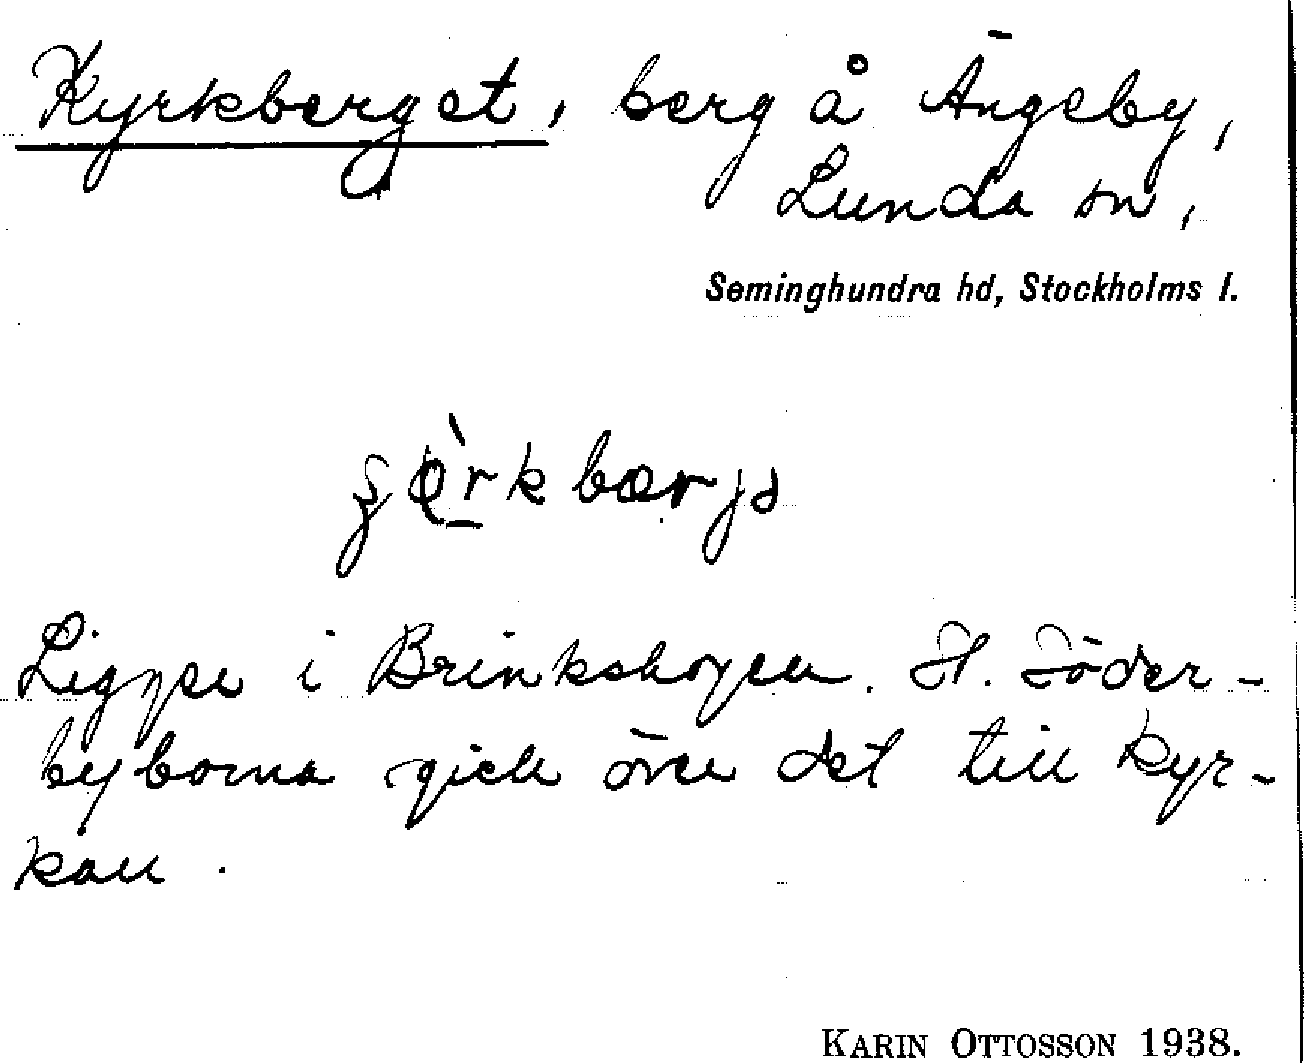 Kyrkberget, berg å Ängeby,
Lunda sn,
Seminghundra hd, Stockholms l.
Ligger i Brinkskogen. St. Söder-
byborna gick över det till kyr-
kan.
KARIN OTTOSSON 1938.